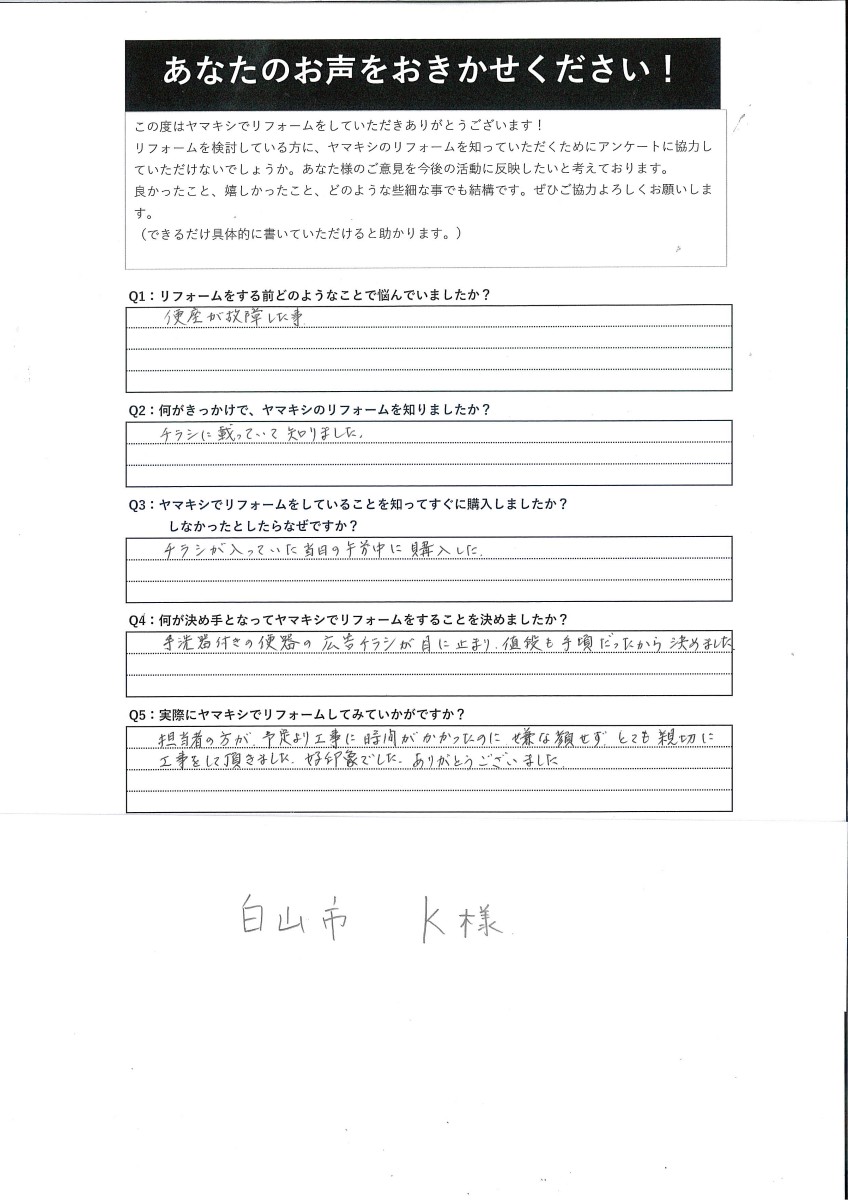 あなたのお声をおきかせください！
この度はヤマキシでリフォームをしていただきありがとうございます！
リフォームを検討している方に、ヤマキシのリフォームを知っていただくためにアンケートに協力し
ていただけないでしょうか。あなた様のご意見を今後の活動に反映したいと考えております。
良かったこと、嬉しかったこと、どのような些細な事でも結構です。ぜひご協力よろしくお願いしま
す。
（できるだけ具体的に書いていただけると助かります。）
Q1：リフォームをする前どのようなことで悩んでいましたか？
便座が故障した事
Q2：何がきっかけで、ヤマキシのリフォームを知りましたか？
チラシに載っていて知りました。
Q3：ヤマキシでリフォームをしていることを知ってすぐに購入しましたか？
しなかったとしたらなぜですか？
チラシが入っていた当日の午前中に購入した。
Q4：何が決め手となってヤマキシでリフォームをすることを決めましたか？
手洗器付きの便器の広告チラシが目に止まり、値段も手頃だったから決めました
Q5：実際にヤマキシでリフォームしてみていかがですか？
担当者の方が、予定より工事に時間がかかったのに嫌な顔せず、とても親切に
工事をして頂きました。好印象でした。ありがとうございました。
白山市 K様